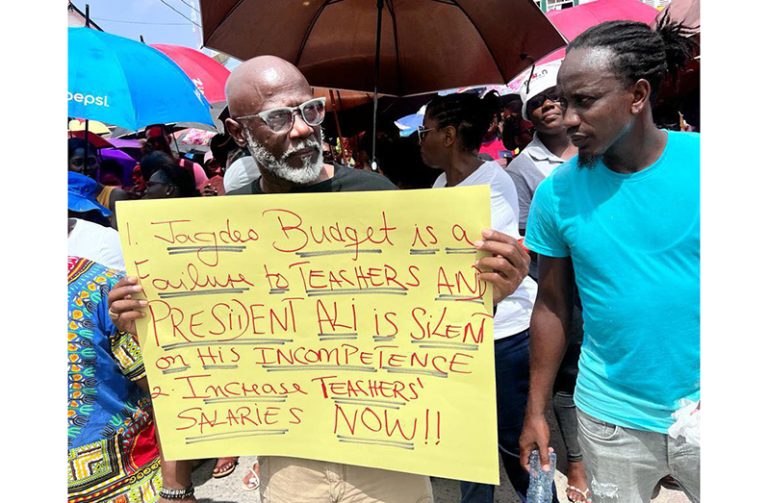 pepsi
1. Jagdeo Budget is a
Failure to TEACHERS AND
PRESIDENT ALI is SILENT
on HIS INCOMPETENCE
2. Increase TEACHERS'
SALARIES NOW!!